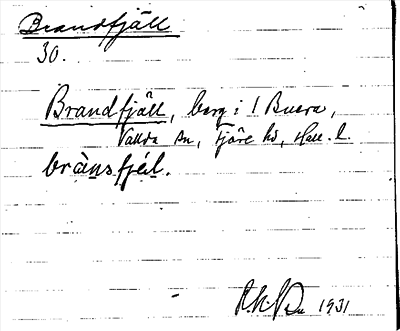 Brandfjäll
30.
Brandfjäll, berg i 1 Buera,
Vallda sn, Fjäre hd, Hall. l.
brànsfjél.
1931